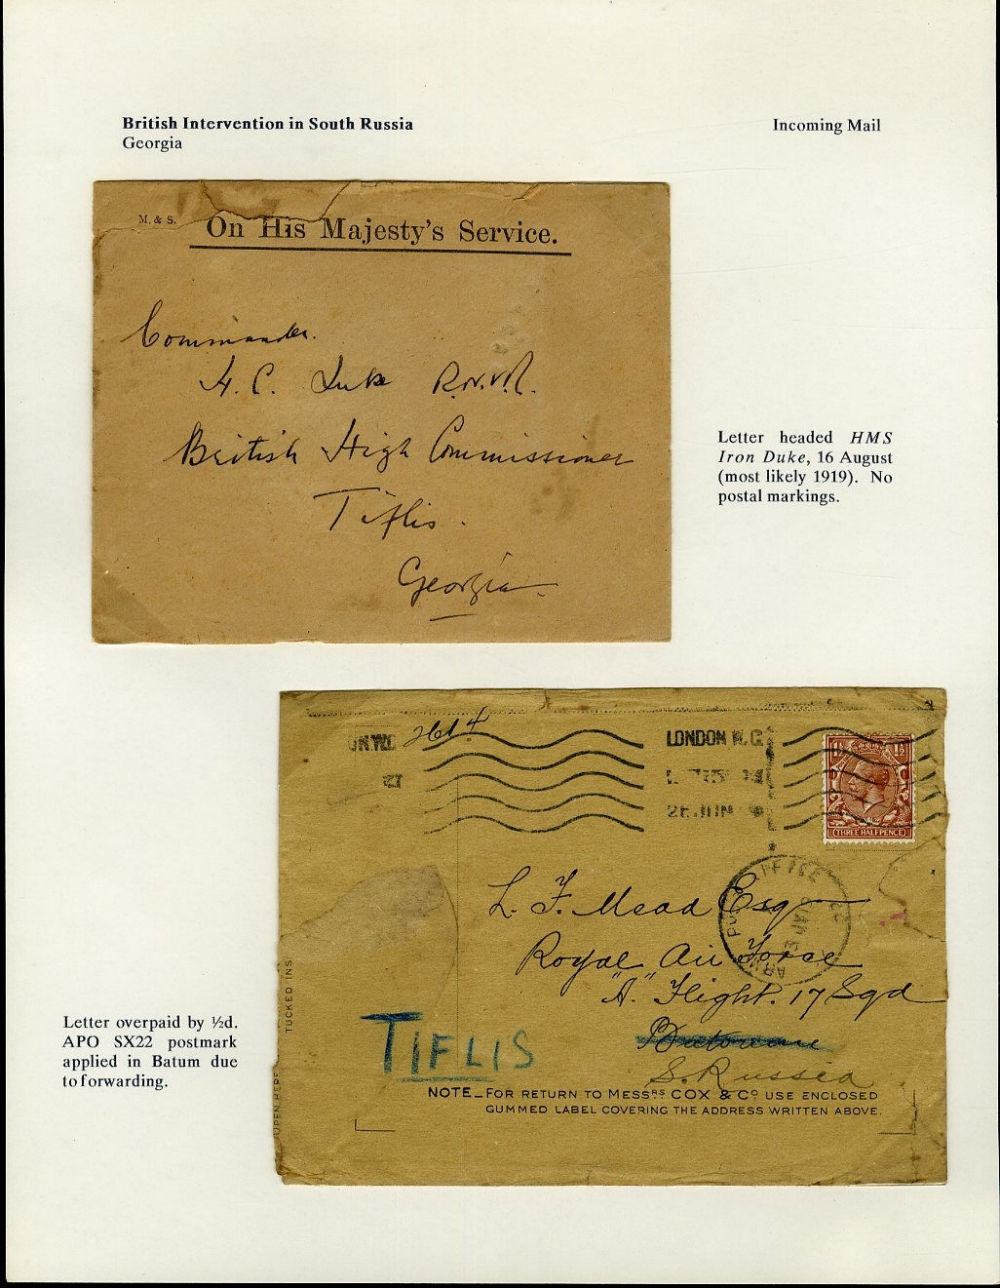 British Intervention in South Russia
Georgia
Incoming Mail
M. & S.
On His Majesty's Service.
Commander.
H. C. Luke R.N.V.R.
British High Commissioner
Tiflis.
Georgia.
Letter headed HMS
Iron Duke, 16 August
(most likely 1919). No
postal markings.
2614
LONDON W.C.
26 JUN
THREE HALFPENCE
L. F. Mead Esq
Royal Air Force
"A" Flight. 17 Sqd
S. Russia
TIFLIS
TUCKED INS
OPEN HERE
NOTE_FOR RETURN TO MESSRS COX & CO USE ENCLOSED
GUMMED LABEL COVERING THE ADDRESS WRITTEN ABOVE.
Letter overpaid by ½d.
APO SX22 postmark
applied in Batum due
to forwarding.